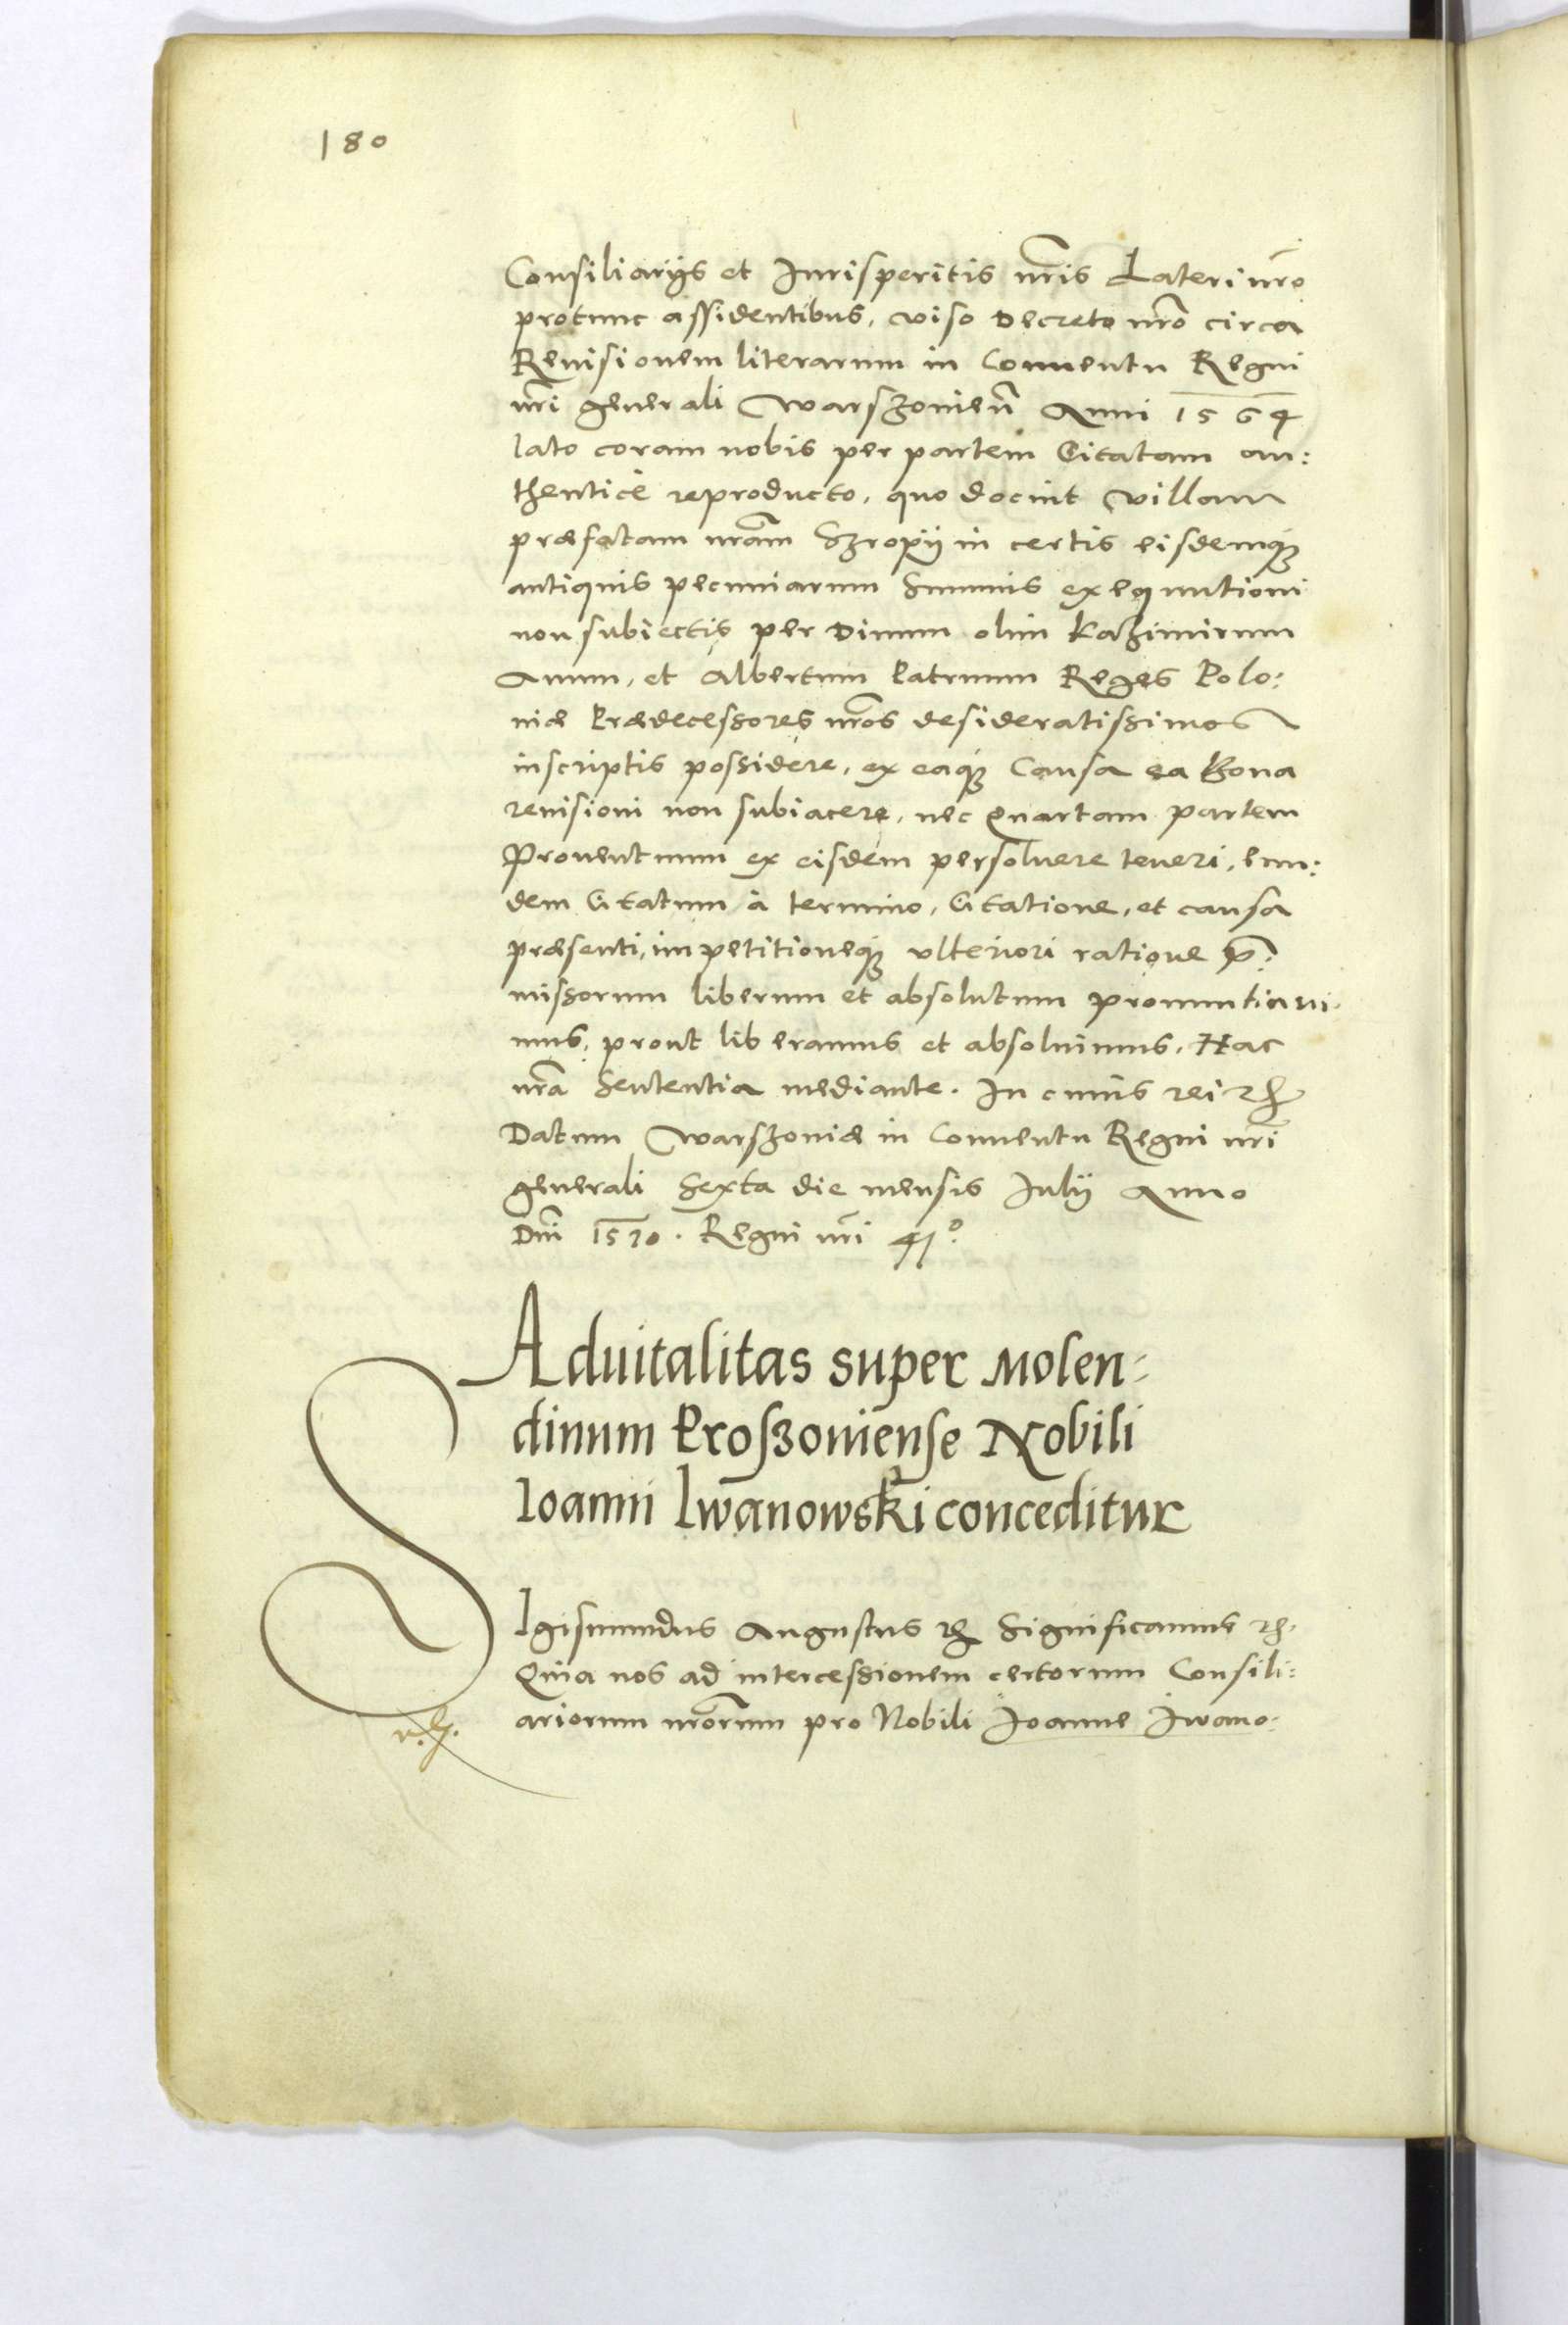 180
Consiliarijs et Jurisperitis nris Lateri nro
protunc assidentibus, viso Decreto nro circa
Reuisionem literarum in Conuentu Regni
nri generali Warszouien Anni 1564
lato coram nobis per partem Citatam au:
thentice reproducto, quo docuit villam
præfatam nram Szropÿ in certis eisdemq3
antiquis pecuniarum Summis exequutioni
non subiectis per Diuum olim Kazimirum
Auum, et Albertum Patruum Reges Polo:
niæ Prædecessores nros desideratissimos
inscriptis possidere, ex eaq3 Causa ea Bona
reuisioni non subiacere, nec Quartam partem
Prouentuum ex eisdem persoluere teneri, eun:
dem Citatum à termino, Citatione, et causa
præsenti, impetitioneq3 vlteriori ratione p:
missorum liberum et absolutum pronuntiaui-
mus, prout liberamus et absoluimus, Hac
nra Sententia mediante. In cuius rei etc
Datum Warszouiæ in Conuentu Regni nri
generali Sexta die mensis Julij Anno
Dni 1570. Regni nri 41º.
Aduitalitas super Molen-
dinum Proszouiense Nobili
Ioanni Iwanowski conceditur
SIgismundus Augustus etc Significamus etc.
Quia nos ad intercessionem certorum Consili:
ariorum nrorum pro Nobili Joanne Jwano: